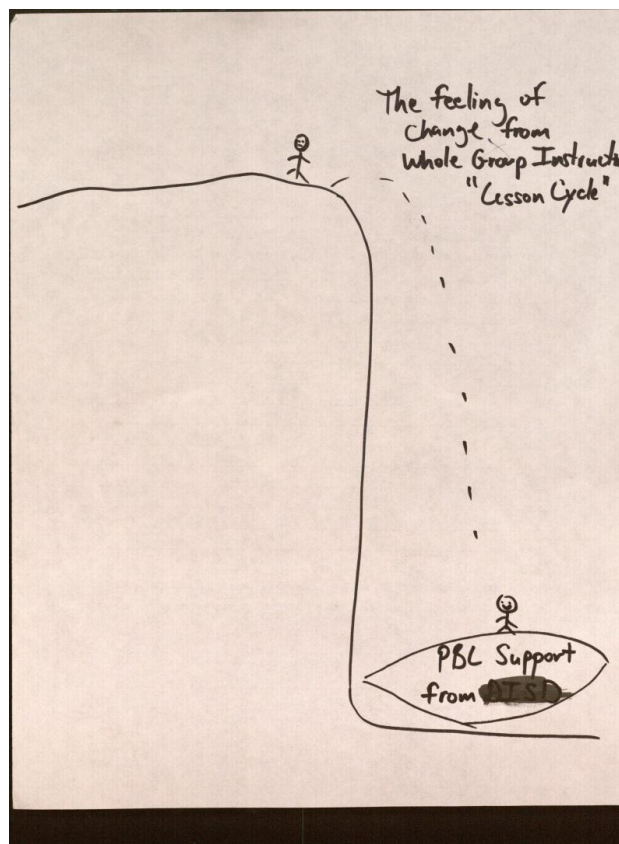 The feeling of
change from
Whole Group Instructi
"Lesson Cycle"
PBL Support
from DISD